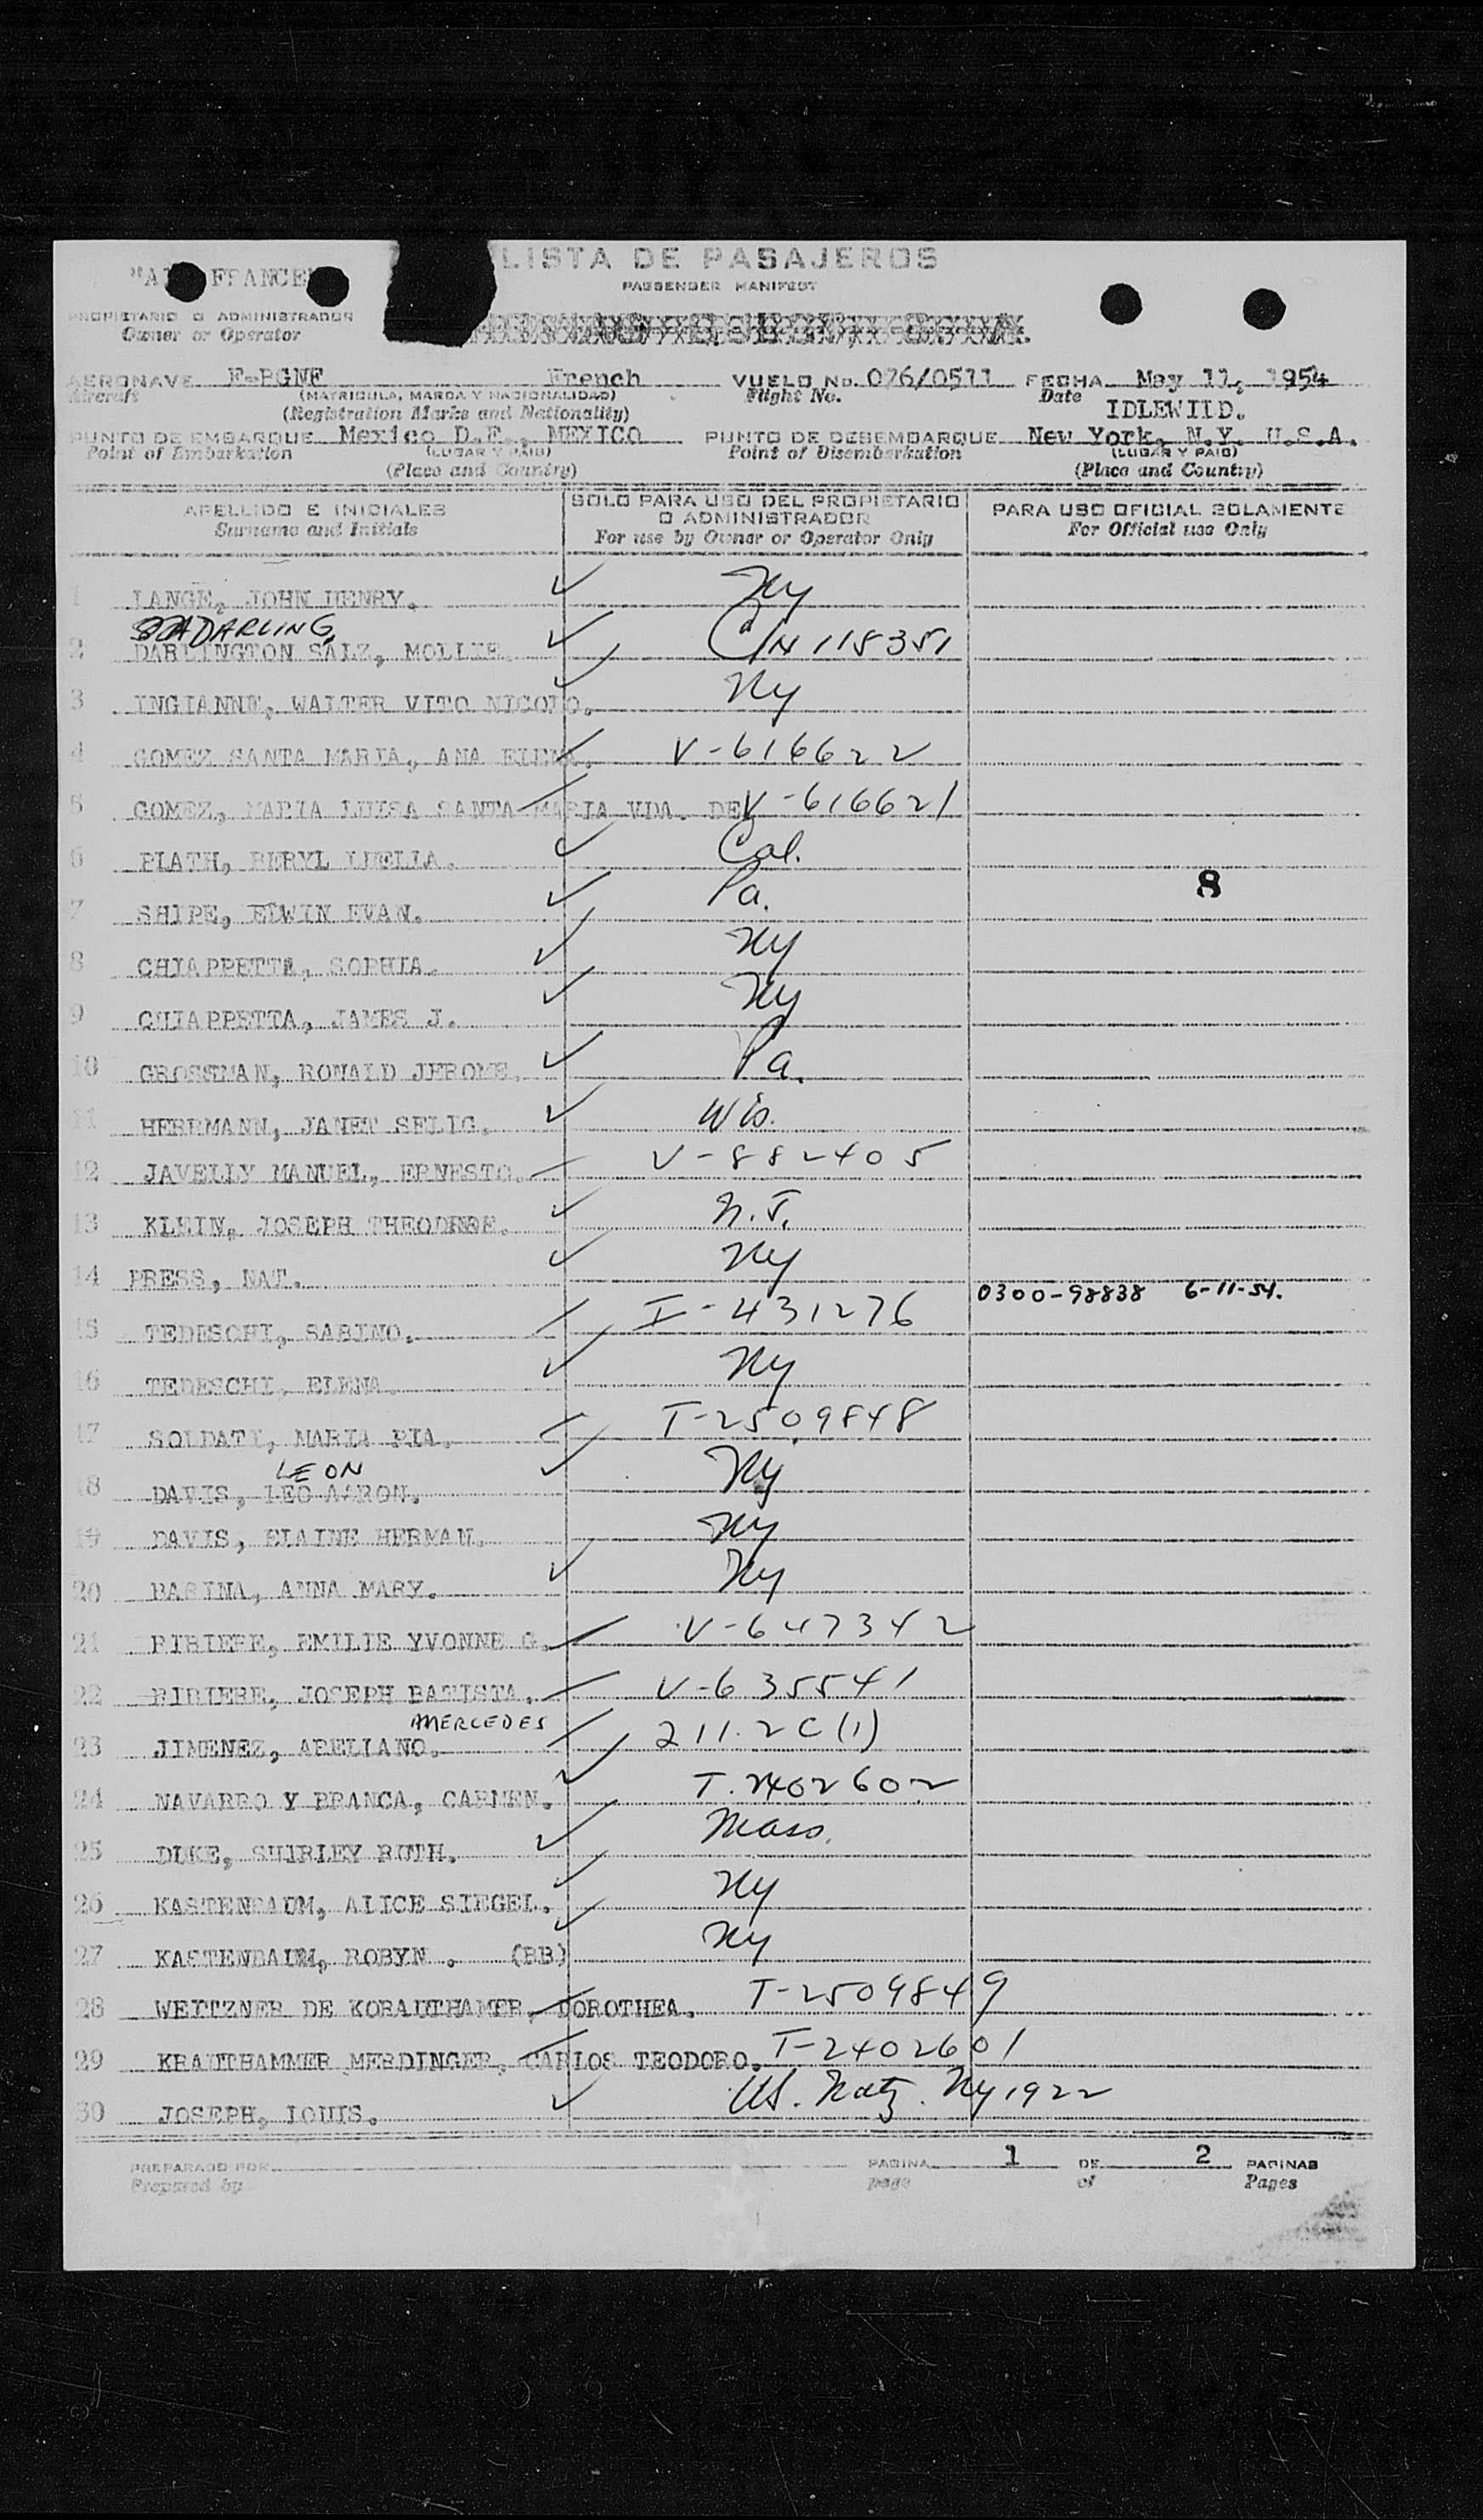 "A FRANCE"
LISTA DE PASAJEROS
PASSENGER MANIFEST
PROPIETARIO O ADMINISTRADOR
Owner or Operator
AERONAVE F-BGNF French VUELO No. 076/0511 FECHA May 11, 1954
Aircraft (MATRICULA, MARCA Y NACIONALIDAD) Flight No. Date
(Registration Marks and Nationality) IDLEWILD.
PUNTO DE EMBARQUE Mexico D.F., MEXICO PUNTO DE DESEMBARQUE New York, N.Y. U.S.A.
Point of Embarkation (LUGAR Y PAIS) Point of Disembarkation (LUGAR Y PAIS)
(Place and Country) (Place and Country)
APELLIDO E INICIALES SOLO PARA USO DEL PROPIETARIO O ADMINISTRADOR PARA USO OFICIAL SOLAMENTE
Surname and Initials For use by Owner or Operator Only For Official use Only
1 LANGE, JOHN HENRY. ✓ Ny
DARLING,
2 DARLINGTON SALZ, MOLLIE. ✓ C/N 115351
3 INGIANNE, WALTER VITO NICOLO. ✓ Ny
4 GOMEZ SANTA MARIA, ANA ELENA. V-616622
5 GOMEZ, MARIA LUISA SANTA MARIA VDA. DE V-616621
6 PLATH, BERYL LUELLA. ✓ Cal.
7 SHIPE, EDWIN EVAN. ✓ Pa. 8
8 CHIAPPETTA, SOPHIA. ✓ Ny
9 CHIAPPETTA, JAMES J. ✓ Ny
10 GROSSMAN, RONALD JEROME. ✓ Pa.
11 HERRMANN, JANET SELIG. ✓ Wis.
12 JAVELLY MANUEL, ERNESTO. V-882405
13 KLEIN, JOSEPH ✓ N.J.
14 PRESS, NAT. ✓ Ny
0300-98838 6-11-54.
15 TEDESCHI, SABINO. I-431276
16 TEDESCHI, ELENA. ✓ Ny
17 SOLDATI, MARIA PIA. T-2509848
LEON
18 DAVIS, LEO AARON. ✓ Ny
19 DAVIS, ELAINE HERMAN. Ny
20 BASINA, ANNA MARY. ✓ Ny
21 RIBIERE, EMILIE YVONNE G. V-647342
22 RIBIERE, JOSEPH BATISTA. V-635541
MERCEDES
23 JIMENEZ, ARELIANO. 211.2C(1)
24 NAVARRO Y BRANCA, CARMEN. ✓ T.2402602
25 DUKE, SHIRLEY RUTH. ✓ Mass.
26 KASTENBAUM, ALICE SIEGEL. ✓ Ny
27 KASTENBAUM, ROBYN . (BB) ✓ Ny
28 WEITZNER DE KORAUTHAMER, DOROTHEA. T-2509849
29 KRAUTHAMMER MERDINGER, CARLOS TEODORO. T-2402601
30 JOSEPH, LOUIS. ✓ US. Natz. Ny 1922
PREPARADO POR PAGINA 1 DE 2 PAGINAS
Prepared by page of Pages